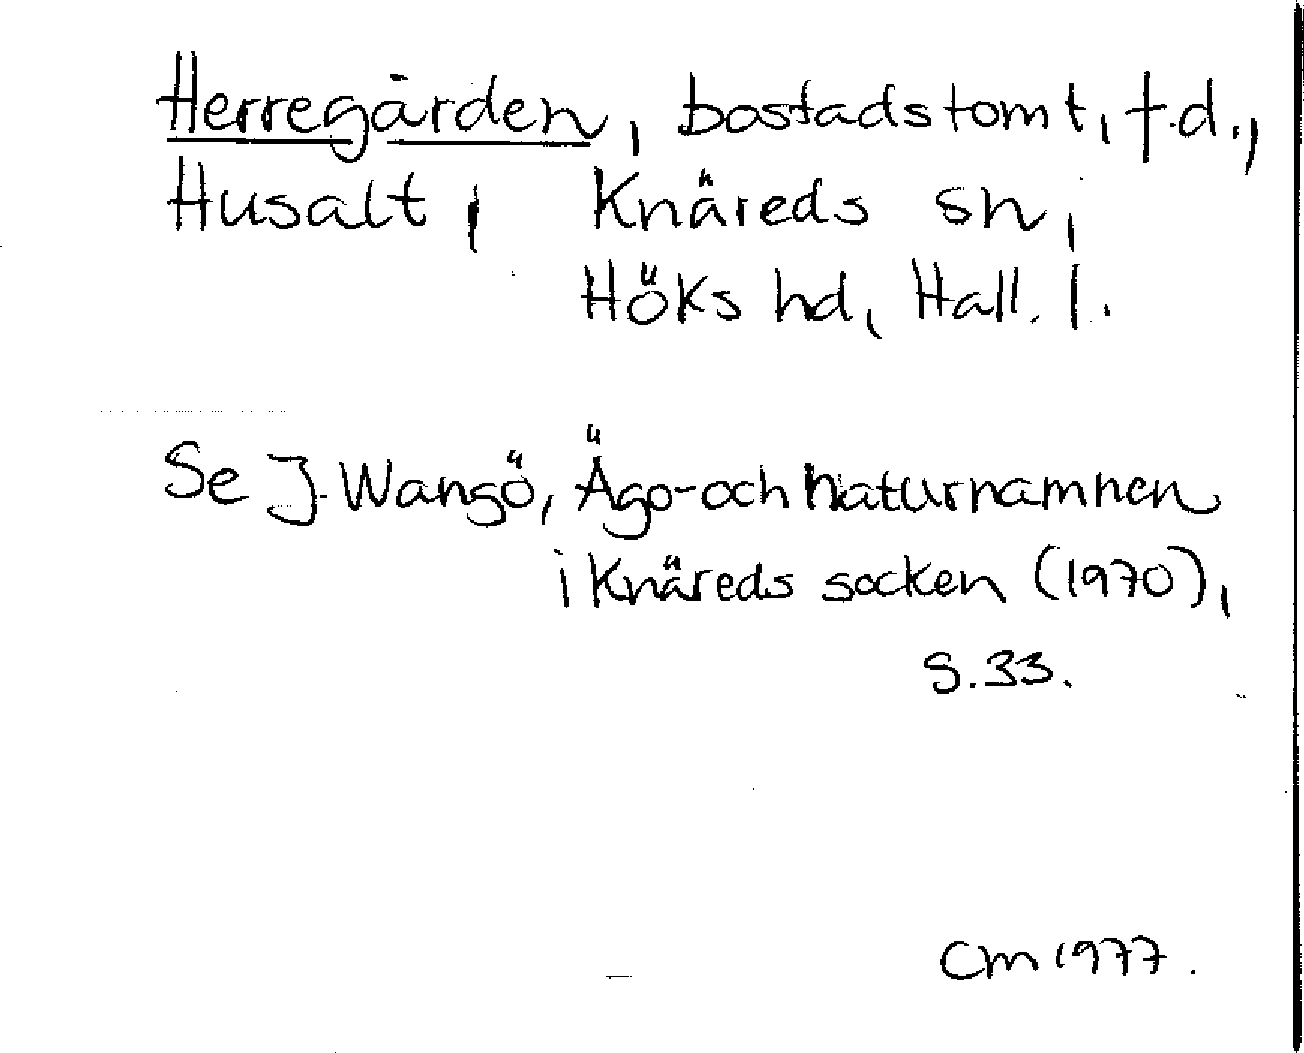 Herregården, bostadstomt, f.d.,
Husalt, Knäreds sn,
Höks hd, Hall. l.
Se J. Wangö, Ägo- och naturnamnen
i Knäreds socken (1970),
S. 33.
CM 1977.